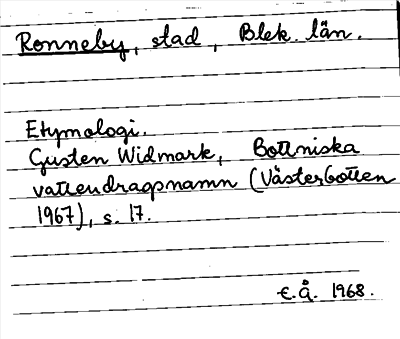 Ronneby, stad, Blek. län.
Etymologi.
Gusten Widmark, Bottniska
vattendragsnamn (Västerbotten
1967), s. 17.
E.Å. 1968.